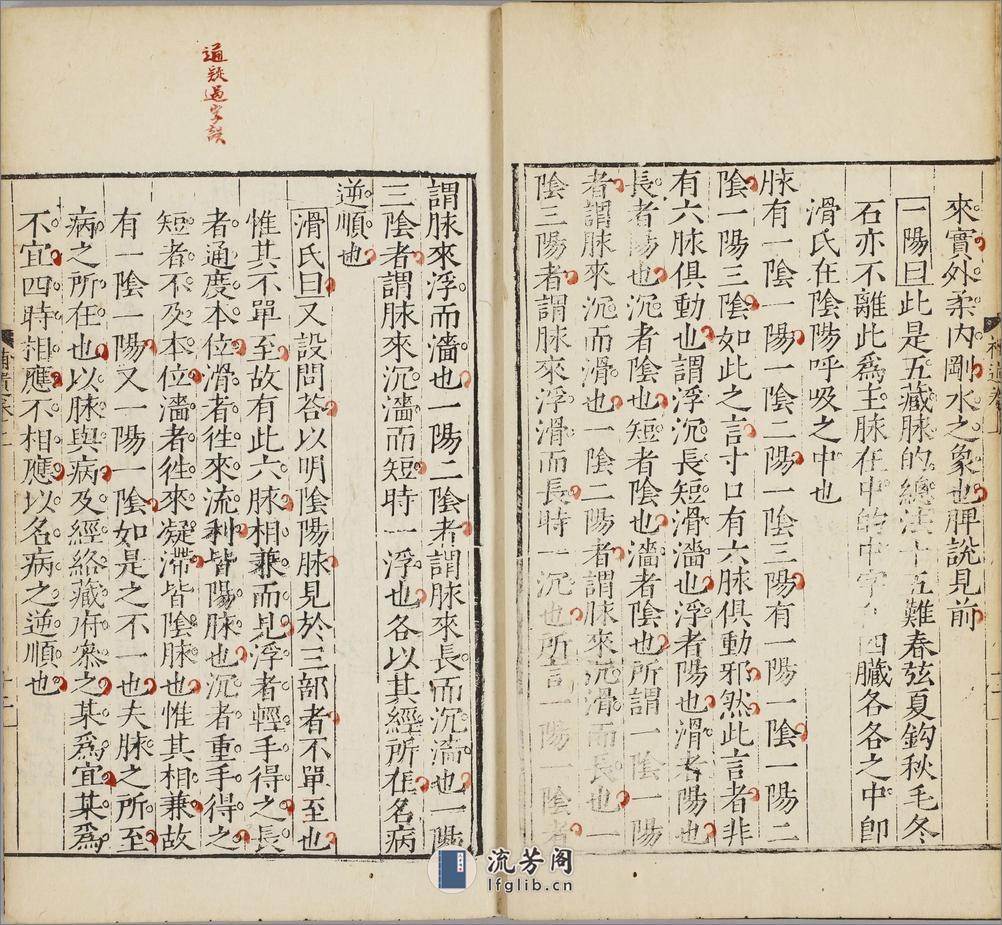 來實外柔内剛水之象也脾說見前
一陽曰此是五藏脉的總法十五難春弦夏鈎秋毛冬
石亦不離此爲主脉在中的中字在四臟各各之中卽
滑氏在陰陽呼吸之中也
脉有一陰一陽一陰二陽一陰三陽有一陽一陰一陽二
陰一陽三陰如此之言寸口有六脉俱動邪然此言者非
有六脉俱動也謂浮沉長短滑濇也浮者陽也滑者陽也
長者陽也沉者陰也短者陰也濇者陰也所謂一陰一陽
者謂脉來沉而滑也一陰二陽者謂脉來沉滑而長也一
陰三陽者謂脉來浮滑而長時一沉也所言一陽一陰者
謂脉來浮而濇也一陽二陰者謂脉來長而沉濇也一陽
三陰者謂脉來沉濇而短時一浮也各以其經所在名病
逆順也
滑氏曰又設問荅以明陰陽脉見於三部者不單至也
惟其不單至故有此六脉相兼而見浮者輕手得之長
者通度本位滑者徃來流利皆陽脉也沉者重手得之
短者不及本位濇者徃來凝滯皆陰脉也惟其相兼故
有一陰一陽又一陽一陰如是之不一也夫脉之所至
病之所在也以脉與病及經絡藏府叅之某爲宜某爲
不宜四時相應不相應以名病之逆順也
通疑過字誤
流芳阁
lfglib.cn